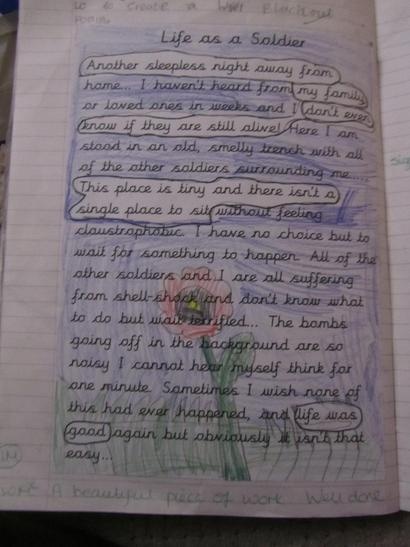 to create a WW1 Blackout
poem.
Life as a Soldier
Another sleepless night away from
home... I haven't heard from my family
or loved ones in weeks and I don't even
know if they are still alive! Here I am
stood in an old, smelly trench with all
of the other soldiers surrounding me.....
This place is tiny and there isn't a
single place to sit without feeling
claustrophobic. I have no choice but to
wait for something to happen. All of the
other soldiers and I are all suffering
from shell-shock and don't know what
to do but wait terrified... The bombs
going off in the background are so
noisy I cannot hear myself think for
one minute. Sometimes I wish none of
this had ever happened, and life was
good again but obviously it isn't that
easy...
A beautiful piece of work. Well done